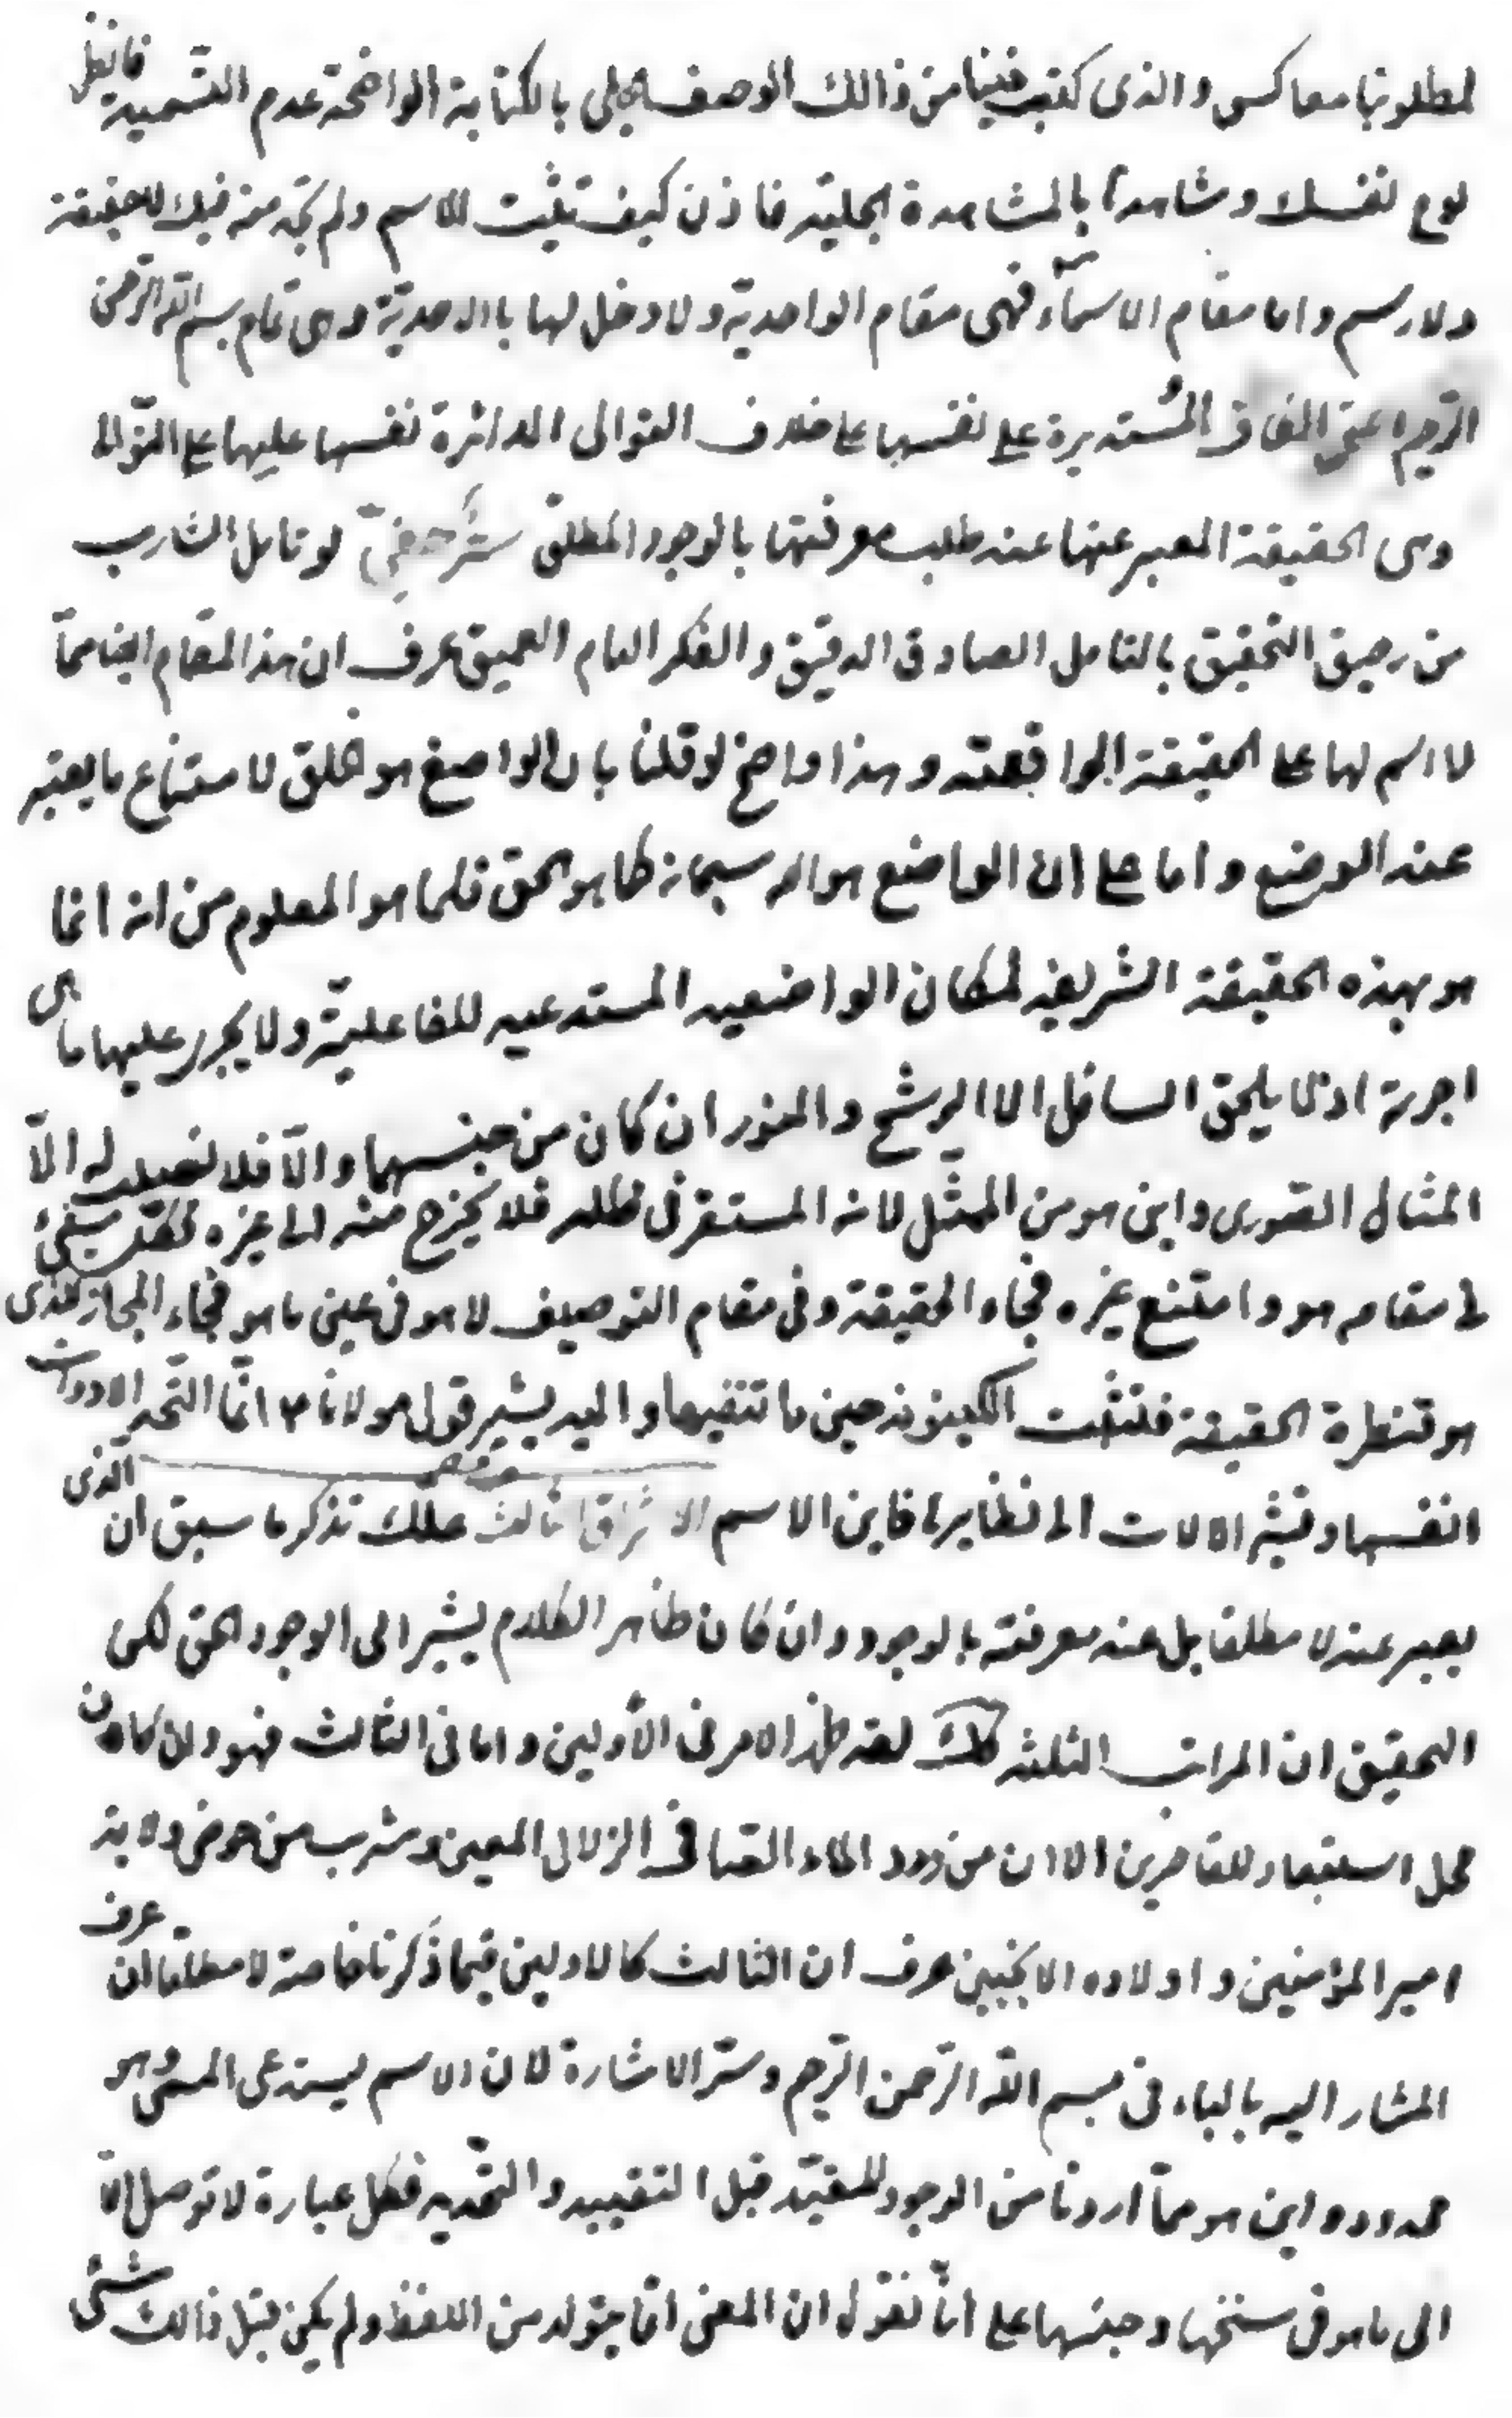 لمطلوبنا معاكس والذى كتب فينا من ذالك الوصف الجلى بالكتابة الواضحة عدم التسمية فانظر
لوح نفسك وشاهدها بالمشاهدة الجلية فاذن كيف تثبت للاسم ولم تجد منه فيك لاحقيقة
ولا رسم واما مقام الاسمآء فهى مقام الواحدية ولا دخل لها بالاحدية وهى تمام بسم الله الرحمن
الرحيم اعنى المستديرة على نفسها على خلاف التوالى الدائرة نفسها عليها على التوالى
وهى الحقيقة المعبر عنها عند طلب معرفتها بالوجود المطلق سرّ خفىّ لو تامل الشارب
من رحيق التحقيق بالتامل الصادق الدقيق والفكر العام العميق عرف ان هذا المقام ايضا ممّا
لا اسم لها على الحقيقة الواقعية وهذا واضح لو قلنا بان الواضع هو الخلق لامتناع ما يعتبر
عند الوضع واما على ان الواضع هو الله سبحانه كما هو الحق فلما هو المعلوم من انه انما
هو بهذه الحقيقة الشريفة لمكان الواضعيه المستدعيه للفاعليّة ولا يجرى عليها ما هى
اجرته اذ لا يلحق السافل الا الرشح والنور ان كان من جنسهما والّا فلا نصيب له الّا
المثال الصّورى واين هو من الممثّل لانه المستقر فى ظله فلا يخرج منه الى غيره لكلّ شىء
فى مقامه هو وامتنع غيره فجاء الحقيقة وفى مقام التوصيف لا هو فى عين ما هو فجاء المجاز الذى
هو قنطرة الحقيقة فتثبت الكينونة حين ما تنفيها واليه يشير قول مولانا ع انّما تحدّ الادوات
انفسها وتشير الالات الى نظايرها فاين الاسم الاشراق الثالث علّك تذكر ما سبق ان الذى
يعبر عنه لا مطلقا بل عند معرفته بالوجود وان كان ظاهر الكلام يشير الى الوجود الحق لكن
التحقيق ان المراتب الثلثه كلك لقد ظهر الامر فى الأولين واما فى الثالث فهو وان كان
محل استبعاد للقاصرين الا ان من ورد الماء الصافى الزلال المعين وشرب من حوض ولاية
امير المؤمنين واولاده الانجبين عرف ان الثالث كالاولين فيما ذكرنا خاصة لا مطلقا ان عرف
المشار اليه بالباء فى بسم الله الرّحمن الرّحيم وسرّ الاشارة لان الاسم يستدعى المسمّى وهو
محدود واين هو ممّا اردنا من الوجود المقيّد قبل التقييد والتحديد فكل عبارة لا توصل الّا
الى ما هو فى سنخها وجنسها على انّا نقول ان المعنى انما يتولد من اللفظ ولم يكن قبل ذالك شىء